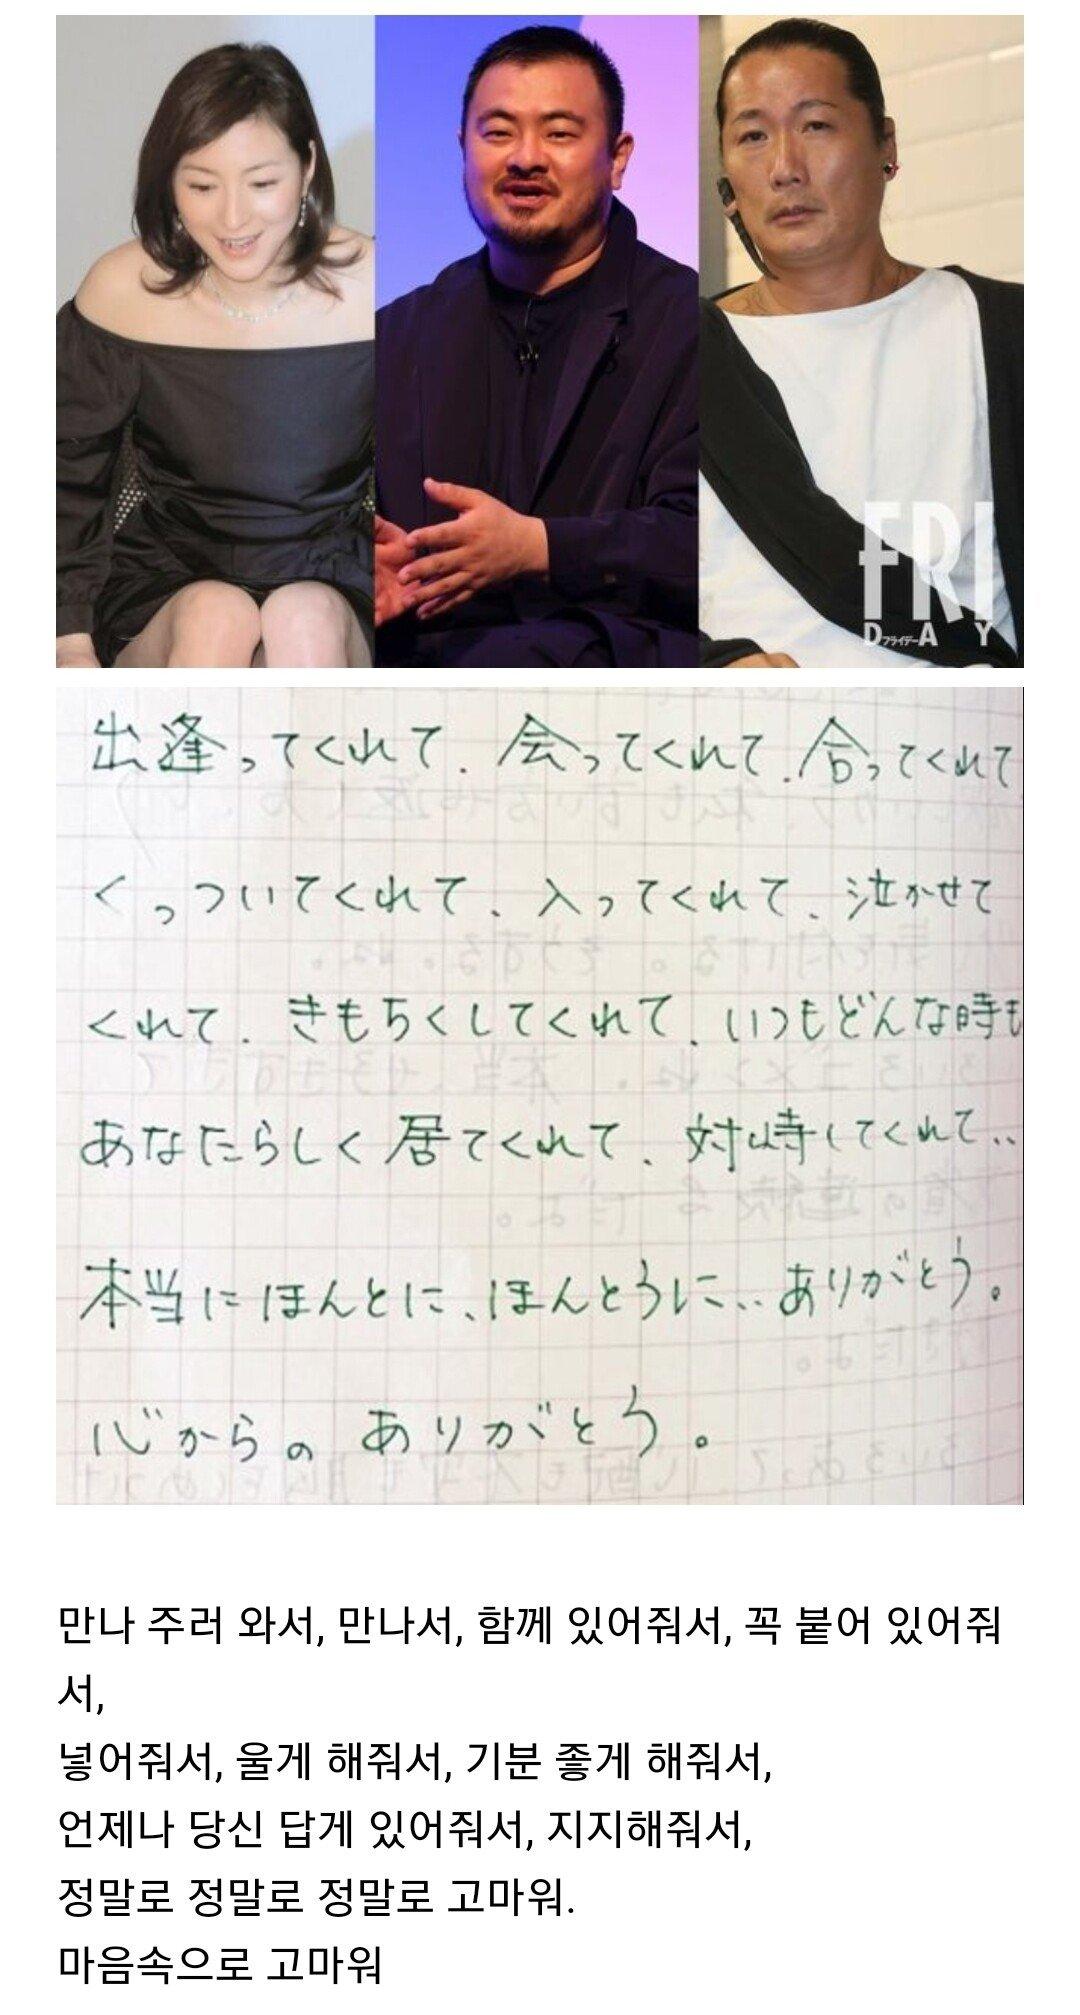 FRI
DフライデーAY
出逢ってくれて、会ってくれて、合ってくれて
くっついてくれて、入ってくれて、泣かせて
くれて、きもちくしてくれて、いつもどんな時も
あなたらしく居てくれて、対峙してくれて‥
本当にほんとに、ほんとうに‥ありがとう。
心からの ありがとう。
만나 주러 와서, 만나서, 함께 있어줘서, 꼭 붙어 있어줘
서,
넣어줘서, 울게 해줘서, 기분 좋게 해줘서,
언제나 당신 답게 있어줘서, 지지해줘서,
정말로 정말로 정말로 고마워.
마음속으로 고마워